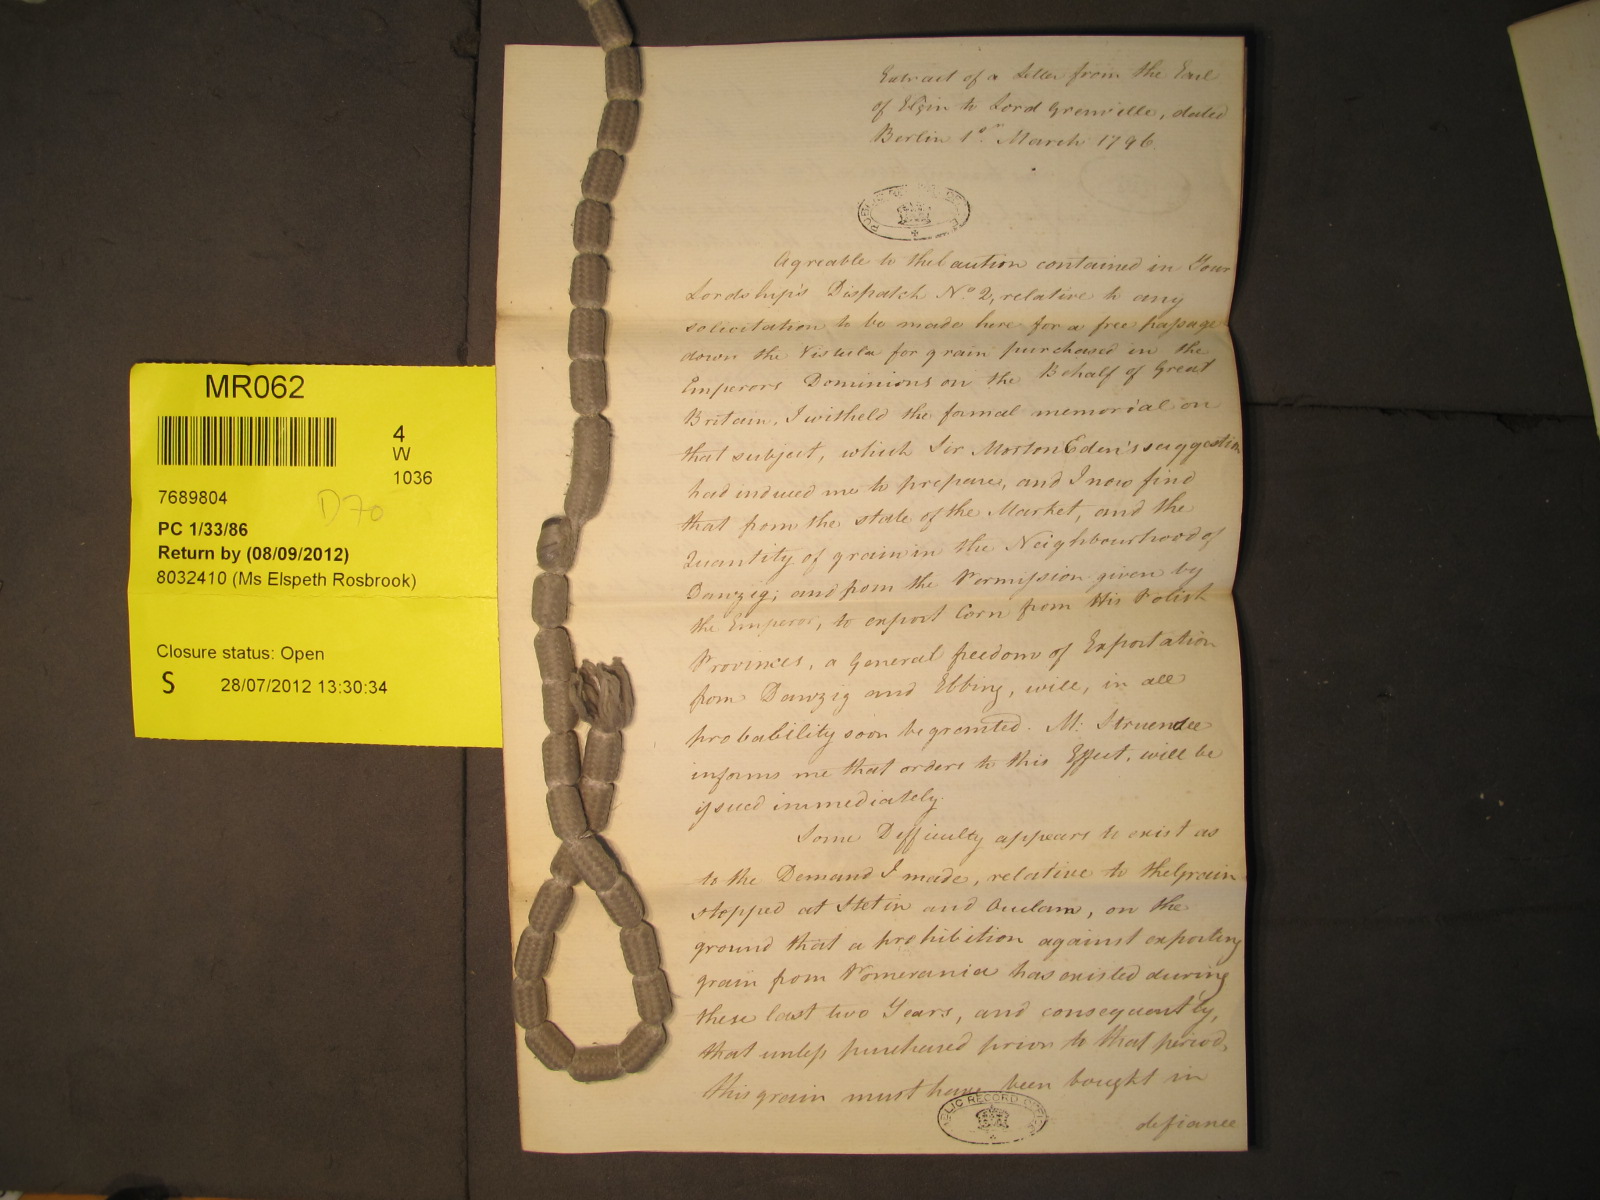 MR062
4
W
1036
7689804
D70
PC 1/33/86
Return by (08/09/2012)
8032410 (Ms Elspeth Rosbrook)
Closure status: Open
S 28/07/2012 13:30:34
Extract of a Letter from the Earl
of Elgin to Lord Grenville, dated
Berlin 1st March 1796.
Agreable to the Caution contained in Your
Lordship's Dispatch No. 2, relative to any
solicitation to be made here for a free passage
down the Vistula for grain purchased in the
Emperors Dominions on the Behalf of Great
Britain, I witheld the formal memorial on
that subject, which Sir Morton Eden's suggestion
had induced me to prepare, and I now find
that from the state of the Market, and the
Quantity of grain in the Neighbourhood of
Danzig; and from the Permission given by
the Emperor, to export Corn from His Polish
Provinces, a General freedom of Exportation
from Danzig and Elbing, will, in all
probability soon be granted. M. Struensee
informs me that orders to this Effect, will be
issued immediately.
Some Difficulty appears to exist as
to the Demand I made, relative to the Grain
stopped at Stetin and Anclam, on the
ground that a prohibition against exporting
grain from Pomerania has existed during
these last two Years, and consequently,
that unless purchased prior to that period,
this grain must have been bought in
PUBLIC RECORD OFFICE
defiance